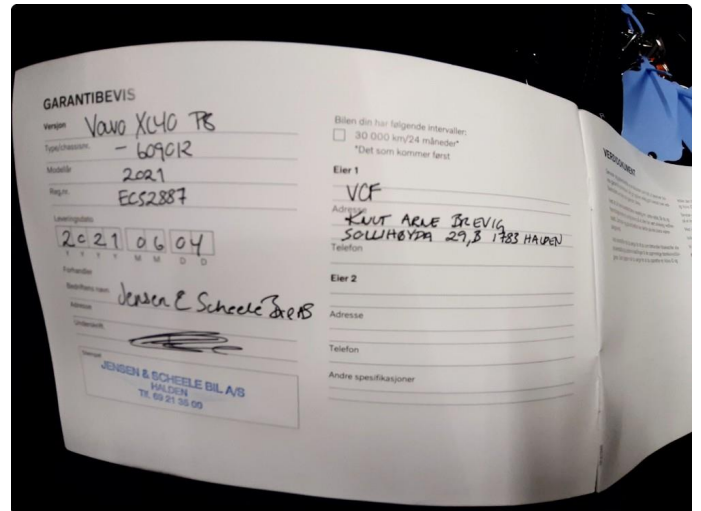 GARANTIBEVIS
Versjon Volvo XC40 P8
Type/chassisnr. - 609012
Modellår 2021
Reg.nr. EC52887
Leveringsdato
2021 06 04
Y Y Y Y M M D D
Forhandler
Bedriftens navn Jensen & Scheele Bil AS
Adresse
Underskrift
Stempel
JENSEN & SCHEELE BIL A/S
HALDEN
Tlf. 69 21 35 00
Bilen din har følgende intervaller:
30 000 km/24 måneder*
*Det som kommer først
Eier 1
VCF
Adresse KNUT ARNE BREVIG
SOLLIHØYDA 29,B 1783 HALDEN
Telefon
Eier 2
Adresse
Telefon
Andre spesifikasjoner